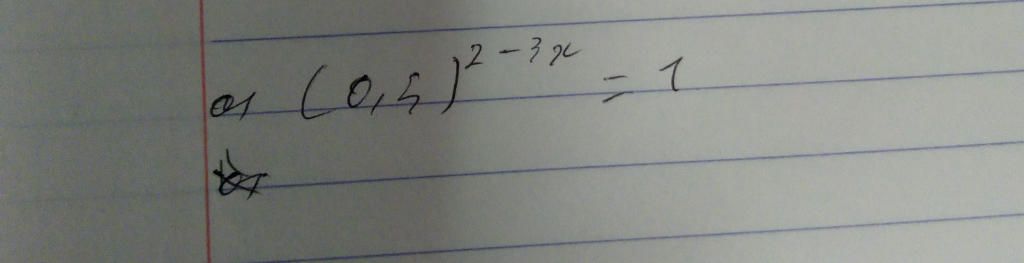 a) (0,5)^{2-3x} = 1